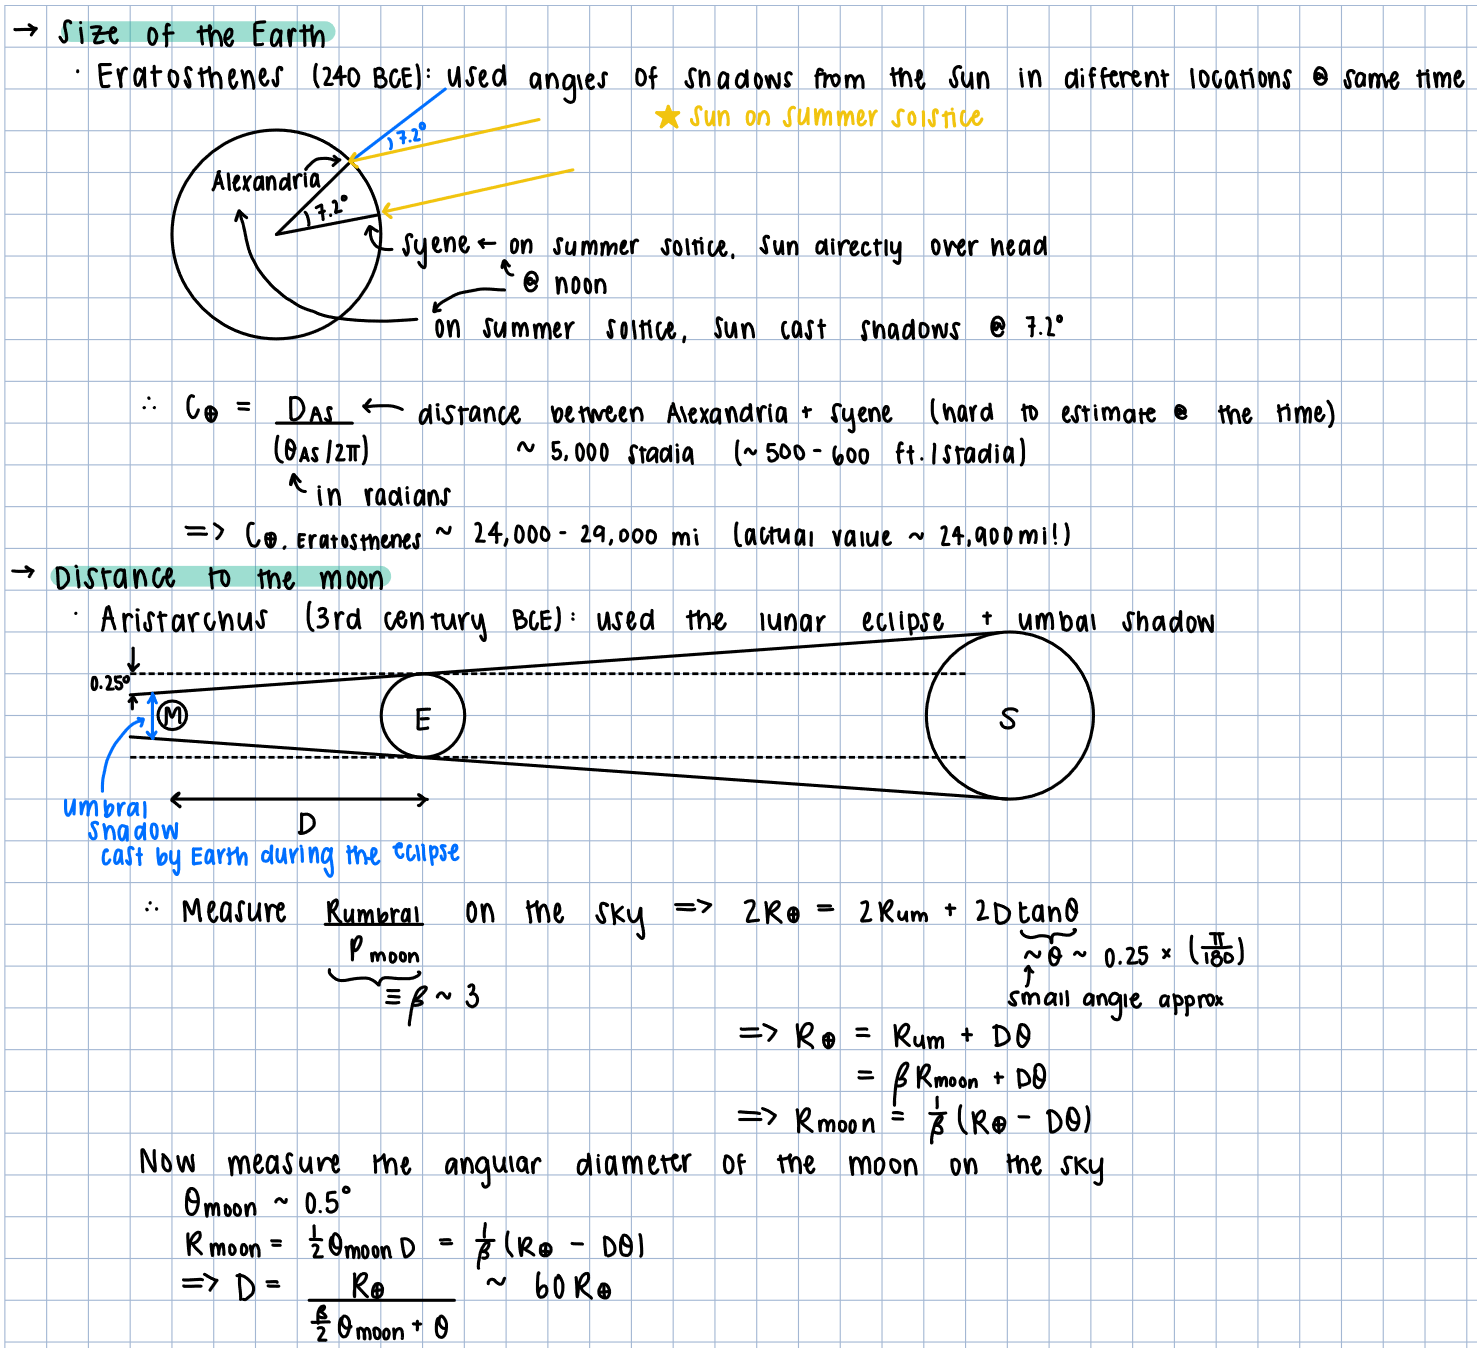 → Size of the Earth
· Eratosthenes (240 BCE): used angles of shadows from the sun in different locations @ same time
★ Sun on summer solstice
7.2°
Alexandria
7.2°
Syene ← on summer soltice, sun directly over head
@ noon
on summer soltice, sun cast shadows @ 7.2°
∴ C⊕ = D_AS / (θ_AS/2π) ← distance between Alexandria + Syene (hard to estimate @ the time)
~ 5,000 stadia (~500-600 ft./stadia)
in radians
=> C⊕, Eratosthenes ~ 24,000 - 29,000 mi (actual value ~ 24,900 mi!)
→ Distance to the moon
· Aristarchus (3rd century BCE): used the lunar eclipse + umbal shadow
0.25°
M
E
S
D
umbral
shadow
cast by Earth during the eclipse
∴ Measure Rumbral / Pmoon on the sky => 2R⊕ = 2Rum + 2D tanθ
~ θ ~ 0.25 × (π/180)
≡ β ~ 3
small angle approx
=> R⊕ = Rum + Dθ
= βRmoon + Dθ
=> Rmoon = 1/β (R⊕ - Dθ)
Now measure the angular diameter of the moon on the sky
θmoon ~ 0.5°
Rmoon = 1/2 θmoon D = 1/β (R⊕ - Dθ)
=> D = R⊕ / (β/2 θmoon + θ) ~ 60 R⊕